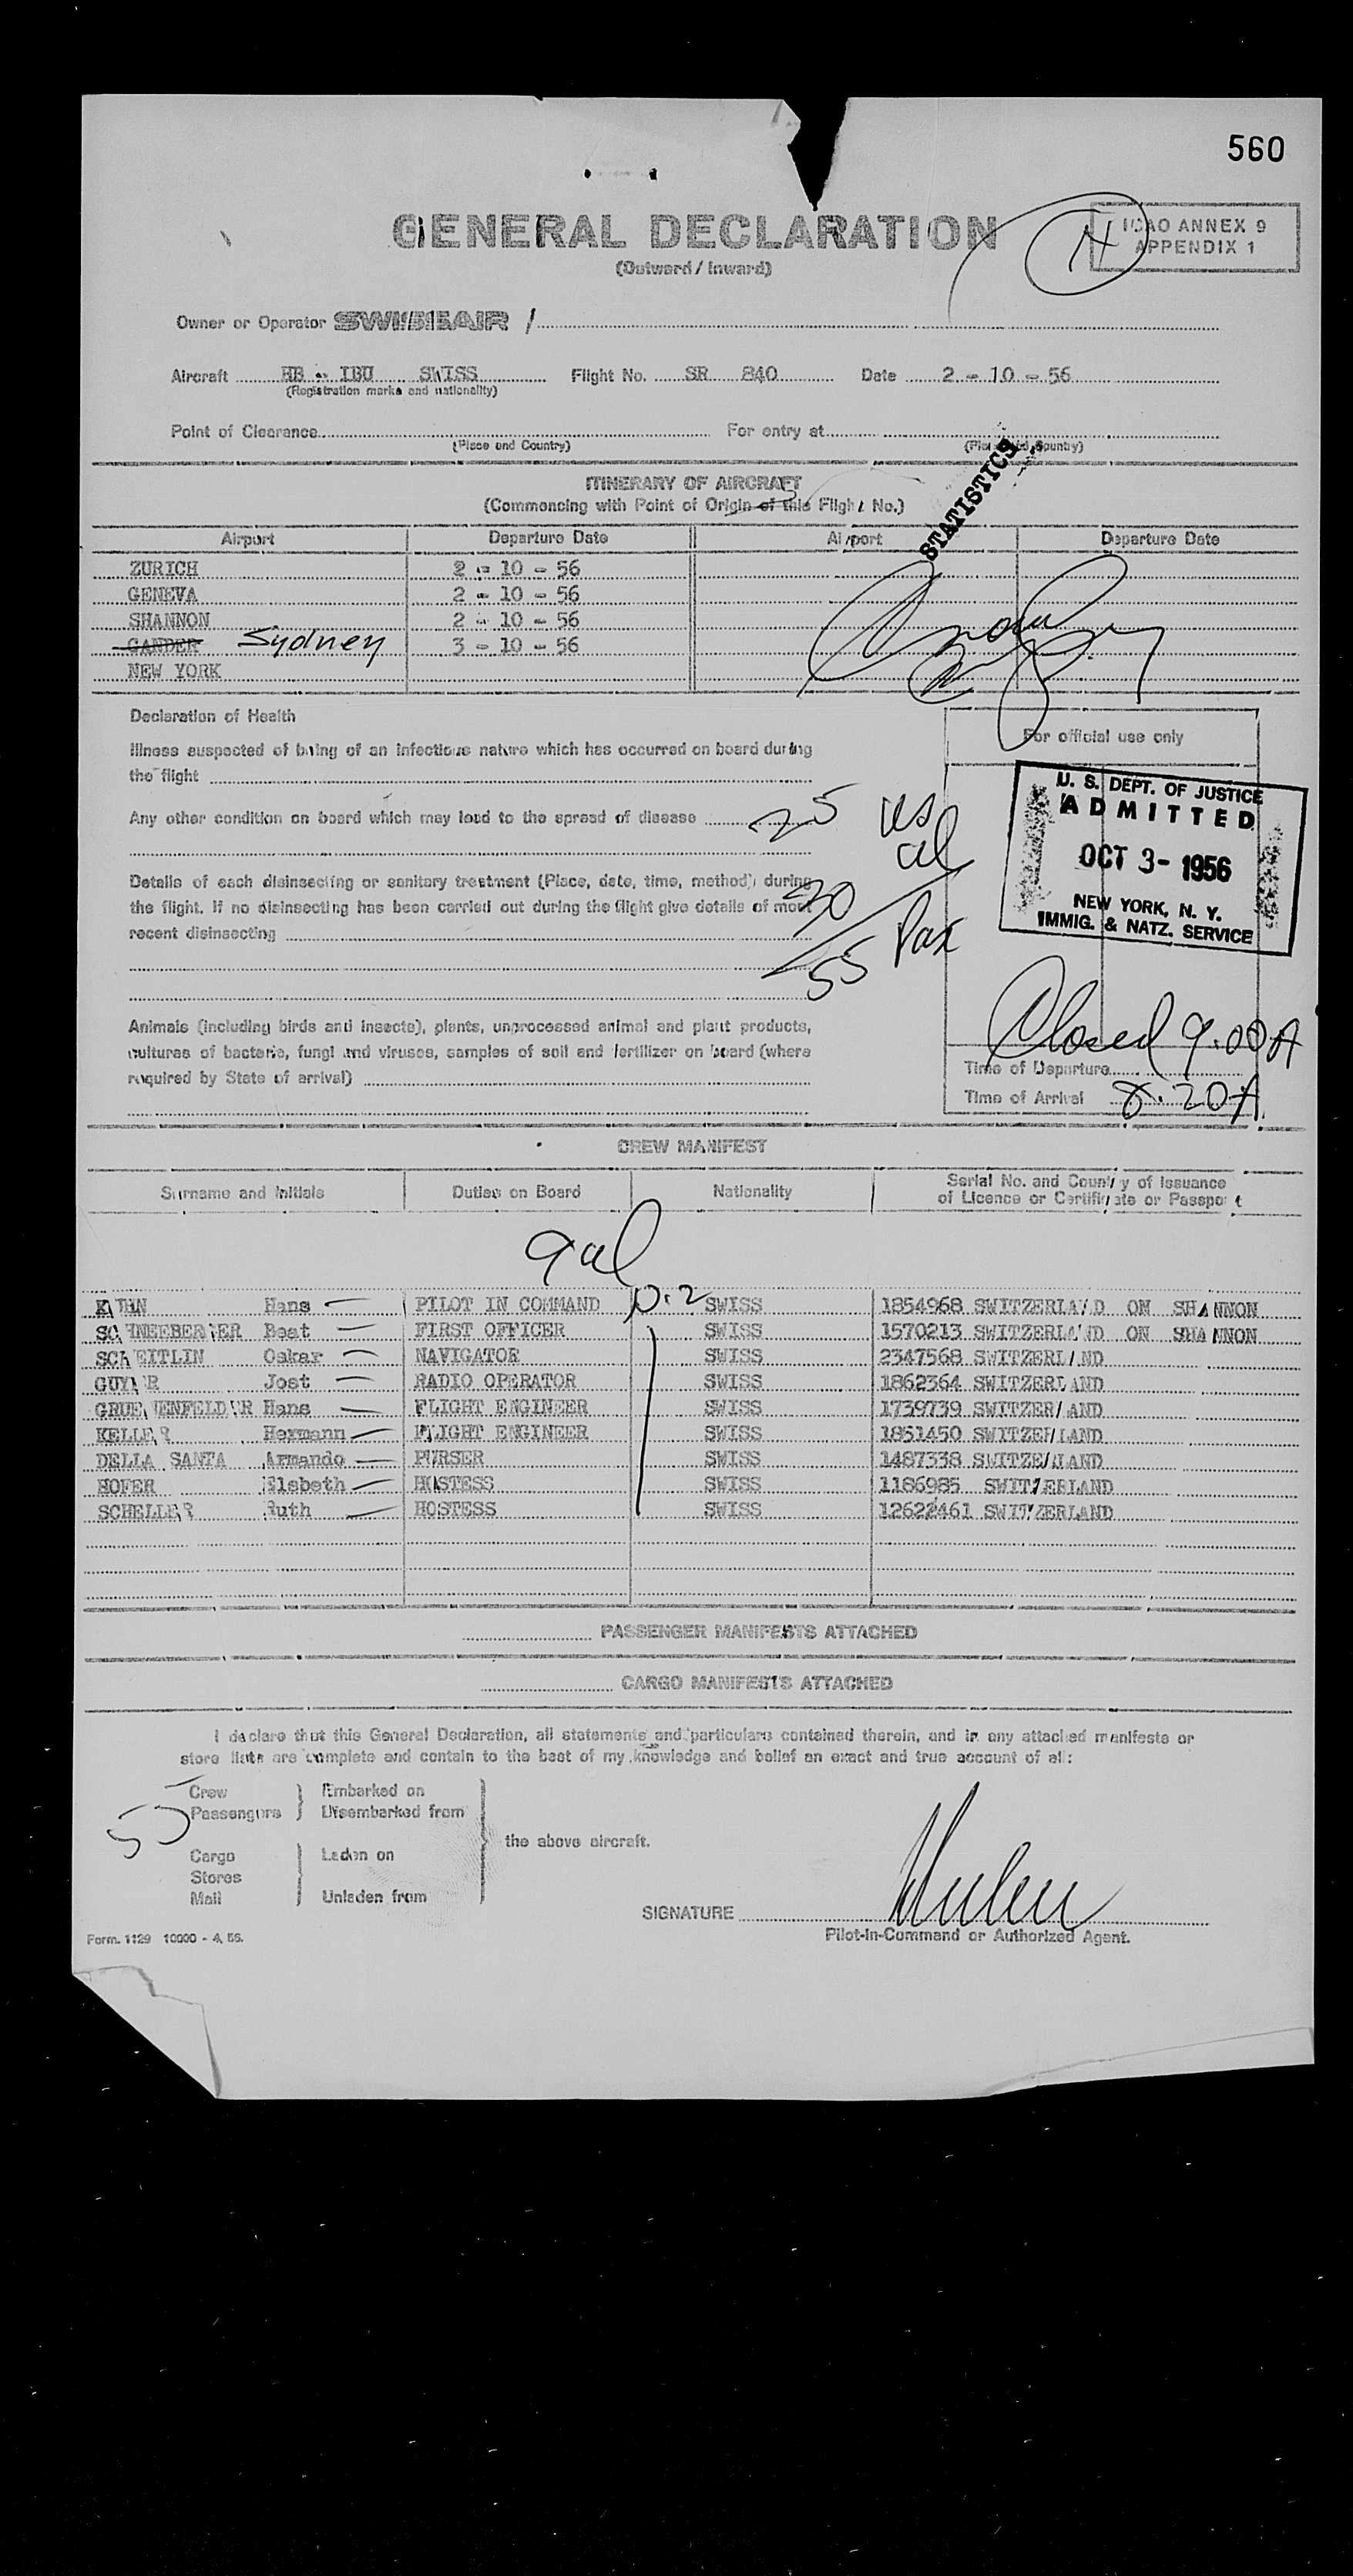 560
GENERAL DECLARATION
(Outward / Inward)
ICAO ANNEX 9
APPENDIX 1
Owner or Operator SWISSAIR /
Aircraft HB - IBU SWISS Flight No. SR 840 Date 2 - 10 - 56
(Registration marks and nationality)
Point of Clearance For entry at
(Place and Country) (Place and Country)
STATISTICS
ITINERARY OF AIRCRAFT
(Commencing with Point of Origin of this Flight No.)
Airport Departure Date Airport Departure Date
ZURICH 2 - 10 - 56
GENEVA 2 - 10 - 56
SHANNON 2 - 10 - 56
GANDER Sydney 3 - 10 - 56
NEW YORK
Declaration of Health
Illness suspected of being of an infectious nature which has occurred on board during
the flight
Any other condition on board which may lead to the spread of disease
Details of each disinsecting or sanitary treatment (Place, date, time, method) during
the flight. If no disinsecting has been carried out during the flight give details of most
recent disinsecting
25 us
30 al
55 Pax
Animals (including birds and insects), plants, unprocessed animal and plant products,
cultures of bacteria, fungi and viruses, samples of soil and fertilizer on board (where
required by State of arrival)
For official use only
U. S. DEPT. OF JUSTICE
ADMITTED
OCT 3- 1956
NEW YORK, N. Y.
IMMIG. & NATZ. SERVICE
Closed 9.00A
Time of Departure
Time of Arrival 8.20A
CREW MANIFEST
Surname and Initials Duties on Board Nationality Serial No. and Country of Issuance
of Licence or Certificate or Passport
9 al
Hans PILOT IN COMMAND D.2 SWISS 1854968 SWITZERLAND ON SHANNON
SCHNEEBERGER Beat FIRST OFFICER SWISS 1570213 SWITZERLAND ON SHANNON
SCHEITLIN Oskar NAVIGATOR SWISS 2347568 SWITZERLAND
GUYER Jost RADIO OPERATOR SWISS 1862364 SWITZERLAND
GRUENENFELDER Hans FLIGHT ENGINEER SWISS 1739739 SWITZERLAND
KELLER Hermann FLIGHT ENGINEER SWISS 1851450 SWITZERLAND
DELLA SANTA Armando PURSER SWISS 1487338 SWITZERLAND
HOFER Elsbeth HOSTESS SWISS 1186985 SWITZERLAND
SCHELLER Ruth HOSTESS SWISS 12622461 SWITZERLAND
PASSENGER MANIFESTS ATTACHED
CARGO MANIFESTS ATTACHED
I declare that this General Declaration, all statements and particulars contained therein, and in any attached manifests or
store lists are complete and contain to the best of my knowledge and belief an exact and true account of all:
Crew Embarked on
55 Passengers Disembarked from
the above aircraft.
Cargo Laden on
Stores
Mail Unladen from
SIGNATURE
Pilot-in-Command or Authorized Agent.
Form. 1129 10000 - 4. 56.